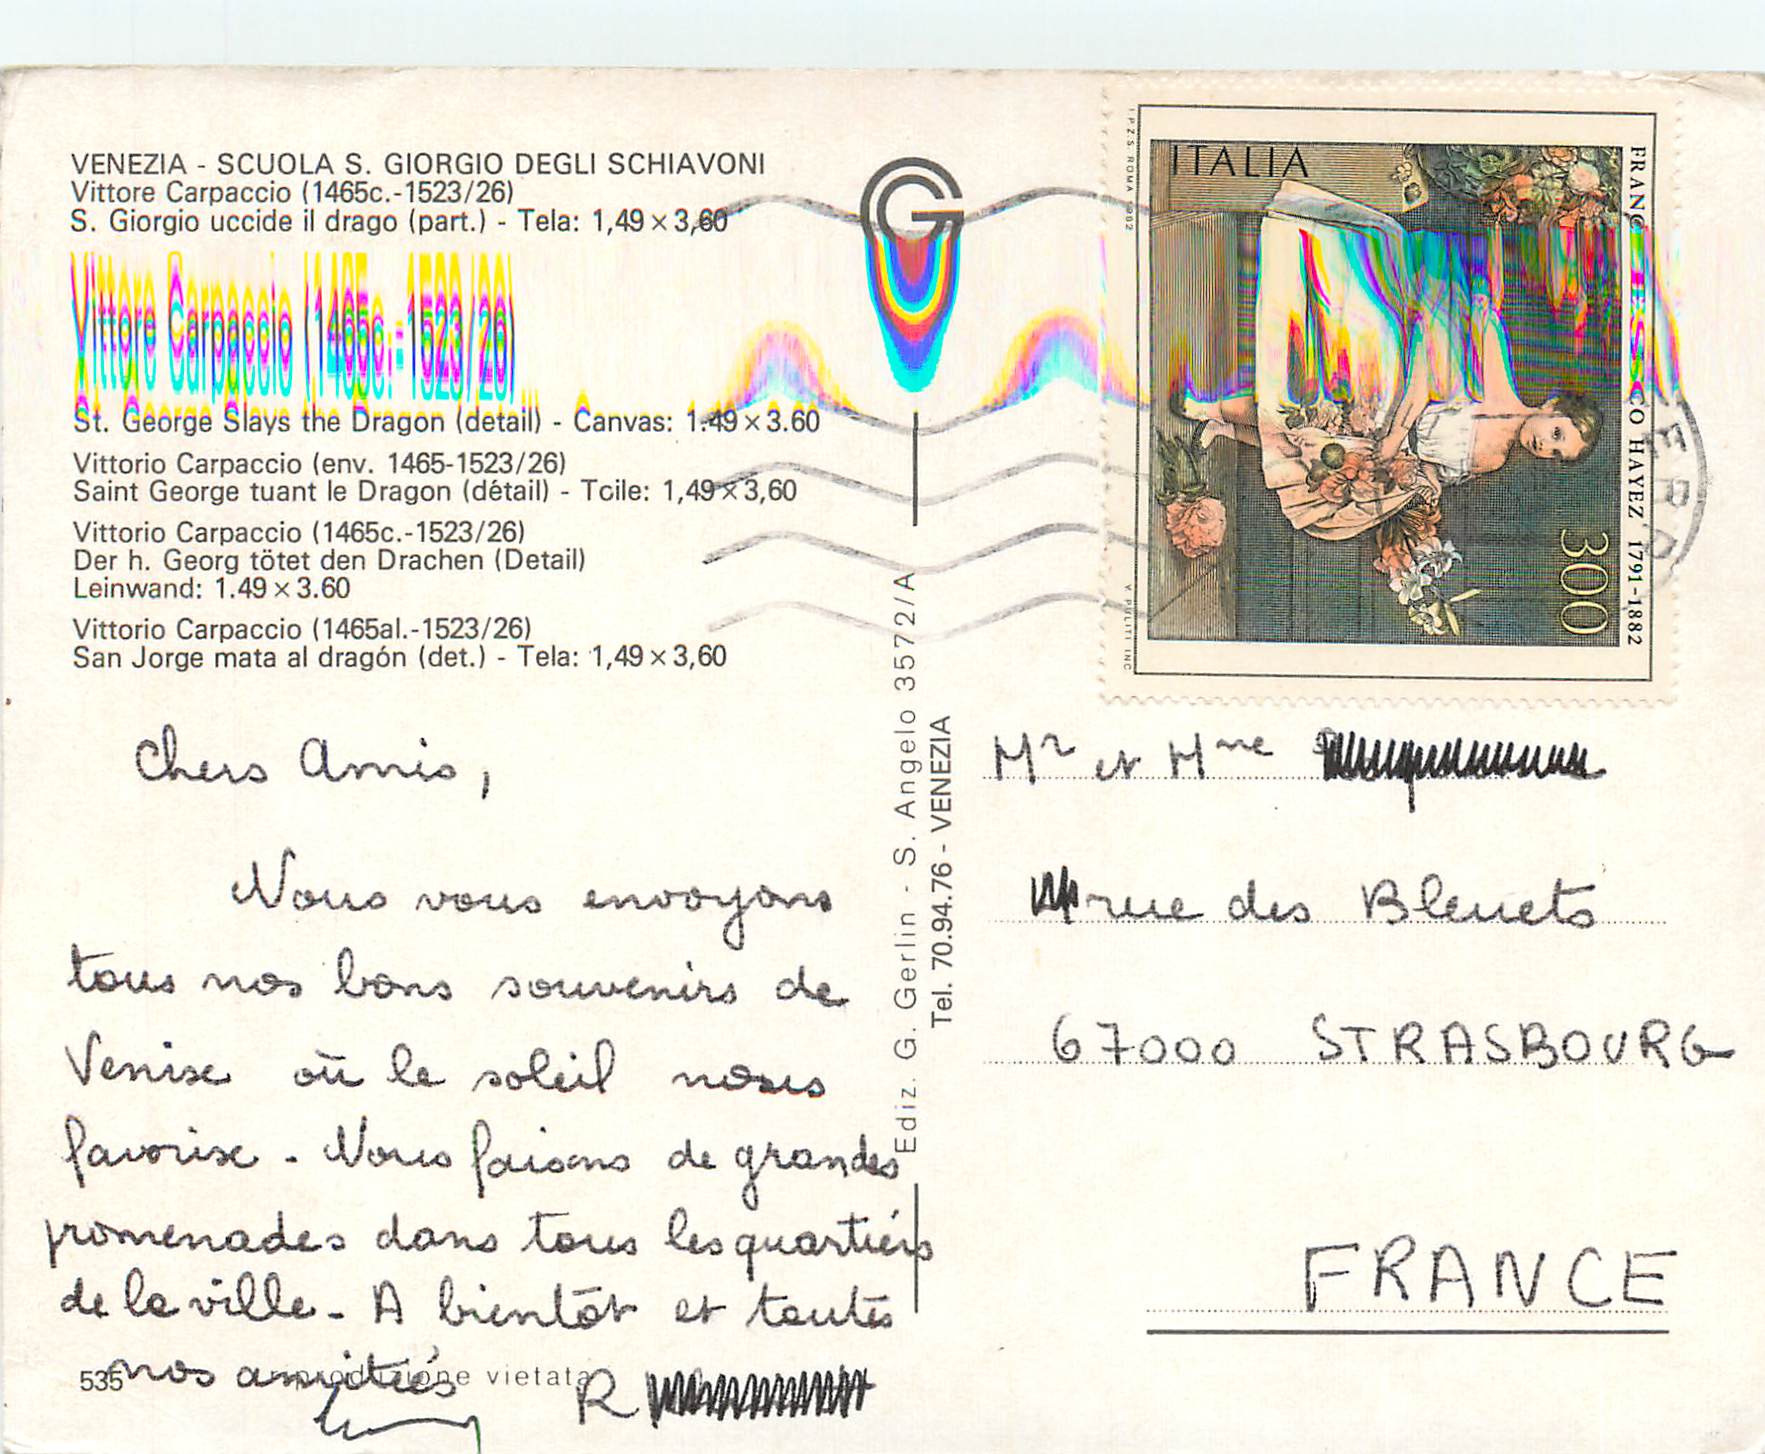 VENEZIA - SCUOLA S. GIORGIO DEGLI SCHIAVONI
Vittore Carpaccio (1465c.-1523/26)
S. Giorgio uccide il drago (part.) - Tela: 1,49 × 3,60
Vittore Carpaccio (1465c.-1523/26)
St. George Slays the Dragon (detail) - Canvas: 1.49 × 3.60
Vittorio Carpaccio (env. 1465-1523/26)
Saint George tuant le Dragon (détail) - Toile: 1,49 × 3,60
Vittorio Carpaccio (1465c.-1523/26)
Der h. Georg tötet den Drachen (Detail)
Leinwand: 1.49 × 3.60
Vittorio Carpaccio (1465al.-1523/26)
San Jorge mata al dragón (det.) - Tela: 1,49 × 3,60
Chers Amis,
Nous vous envoyons
tous nos bons souvenirs de
Venise où le soleil nous
favorise - Nous faisons de grandes
promenades dans tous les quartiers
de la ville - A bientôt et toutes
nos amitiés
R
535 riproduzione vietata
Ediz. G. Gerlin - S. Angelo 3572/A
Tel. 70.94.76 - VENEZIA
G
ITALIA
FRANCESCO HAYEZ 1791-1882
300
I.P.Z.S. ROMA 1982
V. PULITI INC.
Mr et Mme
rue des Bleuets
67000 STRASBOURG
FRANCE